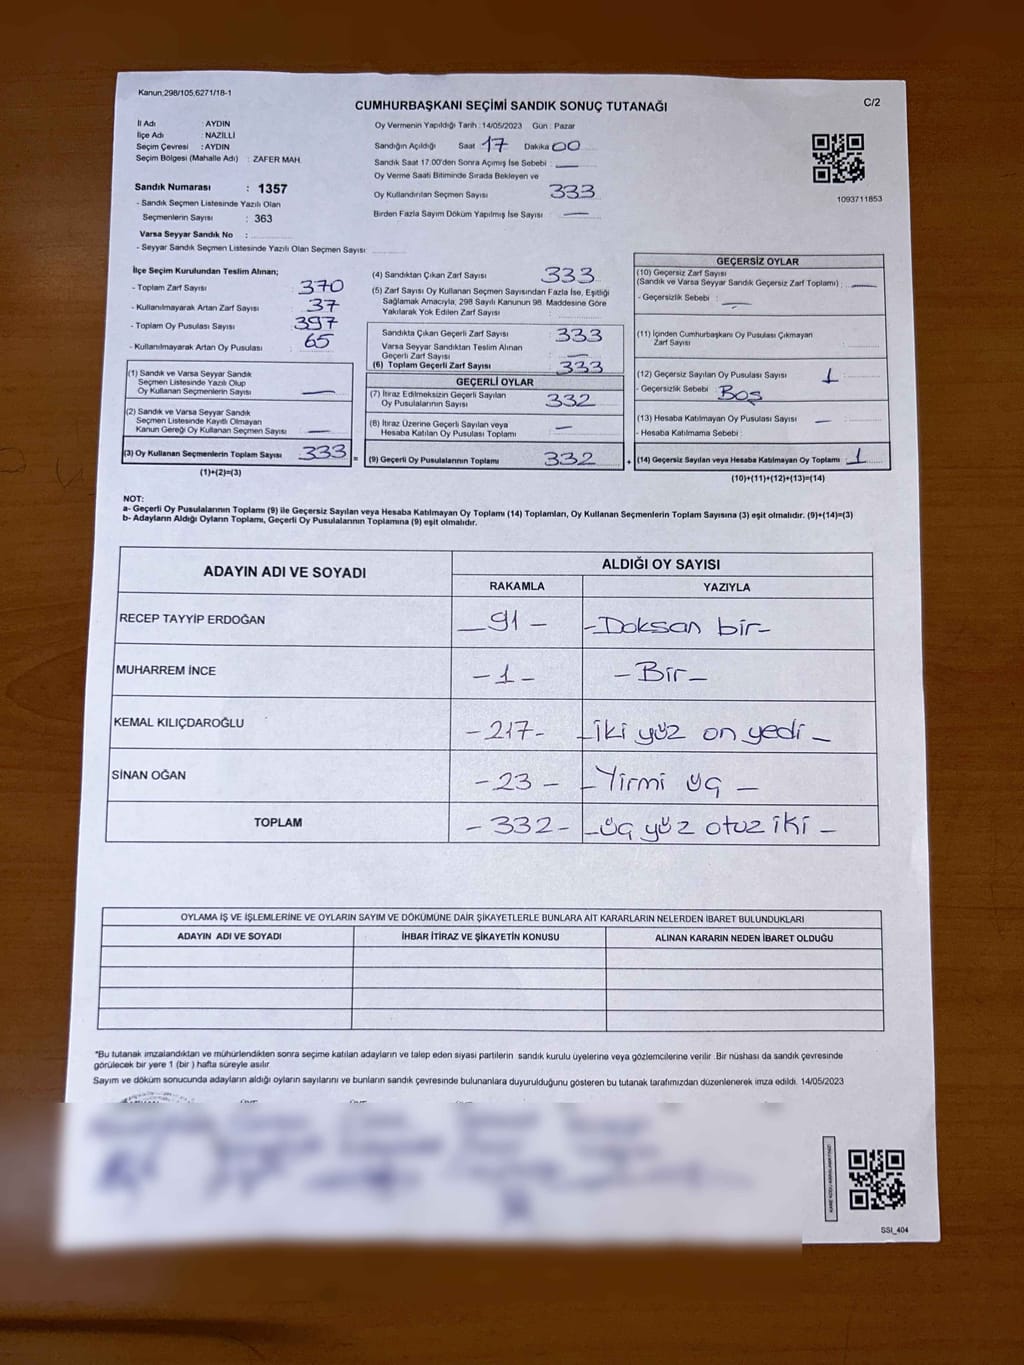 Kanun,298/105,6271/18-1
CUMHURBAŞKANI SEÇİMİ SANDIK SONUÇ TUTANAĞI
C/2
İl Adı : AYDIN
İlçe Adı : NAZİLLİ
Seçim Çevresi : AYDIN
Seçim Bölgesi (Mahalle Adı) : ZAFER MAH.
Sandık Numarası : 1357
- Sandık Seçmen Listesinde Yazılı Olan
Seçmenlerin Sayısı : 363
Varsa Seyyar Sandık No :
- Seyyar Sandık Seçmen Listesinde Yazılı Olan Seçmen Sayısı
Oy Vermenin Yapıldığı Tarih : 14/05/2023 Gün : Pazar
Sandığın Açıldığı Saat 17 Dakika 00
Sandık Saat 17:00'den Sonra Açımış İse Sebebi : —
Oy Verme Saati Bitiminde Sırada Bekleyen ve
Oy Kullandırılan Seçmen Sayısı 333
Birden Fazla Sayım Döküm Yapılmış İse Sayısı —
1093711853
İlçe Seçim Kurulundan Teslim Alınan;
- Toplam Zarf Sayısı 370
- Kullanılmayarak Artan Zarf Sayısı 37
- Toplam Oy Pusulası Sayısı 397
- Kullanılmayarak Artan Oy Pusulası 65
(1) Sandık ve Varsa Seyyar Sandık
Seçmen Listesinde Yazılı Olup
Oy Kullanan Seçmenlerin Sayısı —
(2) Sandık ve Varsa Seyyar Sandık
Seçmen Listesinde Kayıtlı Olmayan
Kanun Gereği Oy Kullanan Seçmen Sayısı —
(3) Oy Kullanan Seçmenlerin Toplam Sayısı 333 =
(1)+(2)=(3)
(4) Sandıktan Çıkan Zarf Sayısı 333
(5) Zarf Sayısı Oy Kullanan Seçmen Sayısından Fazla İse, Eşitliği
Sağlamak Amacıyla; 298 Sayılı Kanunun 98. Maddesine Göre
Yakılarak Yok Edilen Zarf Sayısı
Sandıkta Çıkan Geçerli Zarf Sayısı 333
Varsa Seyyar Sandıktan Teslim Alınan
Geçerli Zarf Sayısı —
(6) Toplam Geçerli Zarf Sayısı 333
GEÇERLİ OYLAR
(7) İtiraz Edilmeksizin Geçerli Sayılan
Oy Pusulalarının Sayısı 332
(8) İtiraz Üzerine Geçerli Sayılan veya
Hesaba Katılan Oy Pusulası Toplamı —
(9) Geçerli Oy Pusulalarının Toplamı 332 +
GEÇERSİZ OYLAR
(10) Geçersiz Zarf Sayısı
(Sandık ve Varsa Seyyar Sandık Geçersiz Zarf Toplamı) : —
- Geçersizlik Sebebi : —
(11) İçinden Cumhurbaşkanı Oy Pusulası Çıkmayan
Zarf Sayısı
(12) Geçersiz Sayılan Oy Pusulası Sayısı 1
- Geçersizlik Sebebi Boş
(13) Hesaba Katılmayan Oy Pusulası Sayısı —
- Hesaba Katılmama Sebebi :
(14) Geçersiz Sayılan veya Hesaba Katılmayan Oy Toplamı 1
(10)+(11)+(12)+(13)=(14)
NOT:
a- Geçerli Oy Pusulalarının Toplamı (9) ile Geçersiz Sayılan veya Hesaba Katılmayan Oy Toplamı (14) Toplamları, Oy Kullanan Seçmenlerin Toplam Sayısına (3) eşit olmalıdır. (9)+(14)=(3)
b- Adayların Aldığı Oyların Toplamı, Geçerli Oy Pusulalarının Toplamına (9) eşit olmalıdır.
ADAYIN ADI VE SOYADI
ALDIĞI OY SAYISI
RAKAMLA YAZIYLA
RECEP TAYYİP ERDOĞAN — 91 — - Doksan bir -
MUHARREM İNCE - 1 - - Bir -
KEMAL KILIÇDAROĞLU - 217 - - iki yüz on yedi -
SİNAN OĞAN - 23 - - Yirmi üç -
TOPLAM - 332 - - üç yüz otuz iki -
OYLAMA İŞ VE İŞLEMLERİNE VE OYLARIN SAYIM VE DÖKÜMÜNE DAİR ŞİKAYETLERLE BUNLARA AİT KARARLARIN NELERDEN İBARET BULUNDUKLARI
ADAYIN ADI VE SOYADI İHBAR İTİRAZ VE ŞİKAYETİN KONUSU ALINAN KARARIN NEDEN İBARET OLDUĞU
"Bu tutanak imzalandıktan ve mühürlendikten sonra seçime katılan adayların ve talep eden siyasi partilerin sandık kurulu üyelerine veya gözlemcilerine verilir. Bir nüshası da sandık çevresinde
görülecek bir yere 1 (bir ) hafta süreyle asılır.
Sayım ve döküm sonucunda adayların aldığı oyların sayılarını ve bunların sandık çevresinde bulunanlara duyurulduğunu gösteren bu tutanak tarafımızdan düzenlenerek imza edildi. 14/05/2023
SSI_404